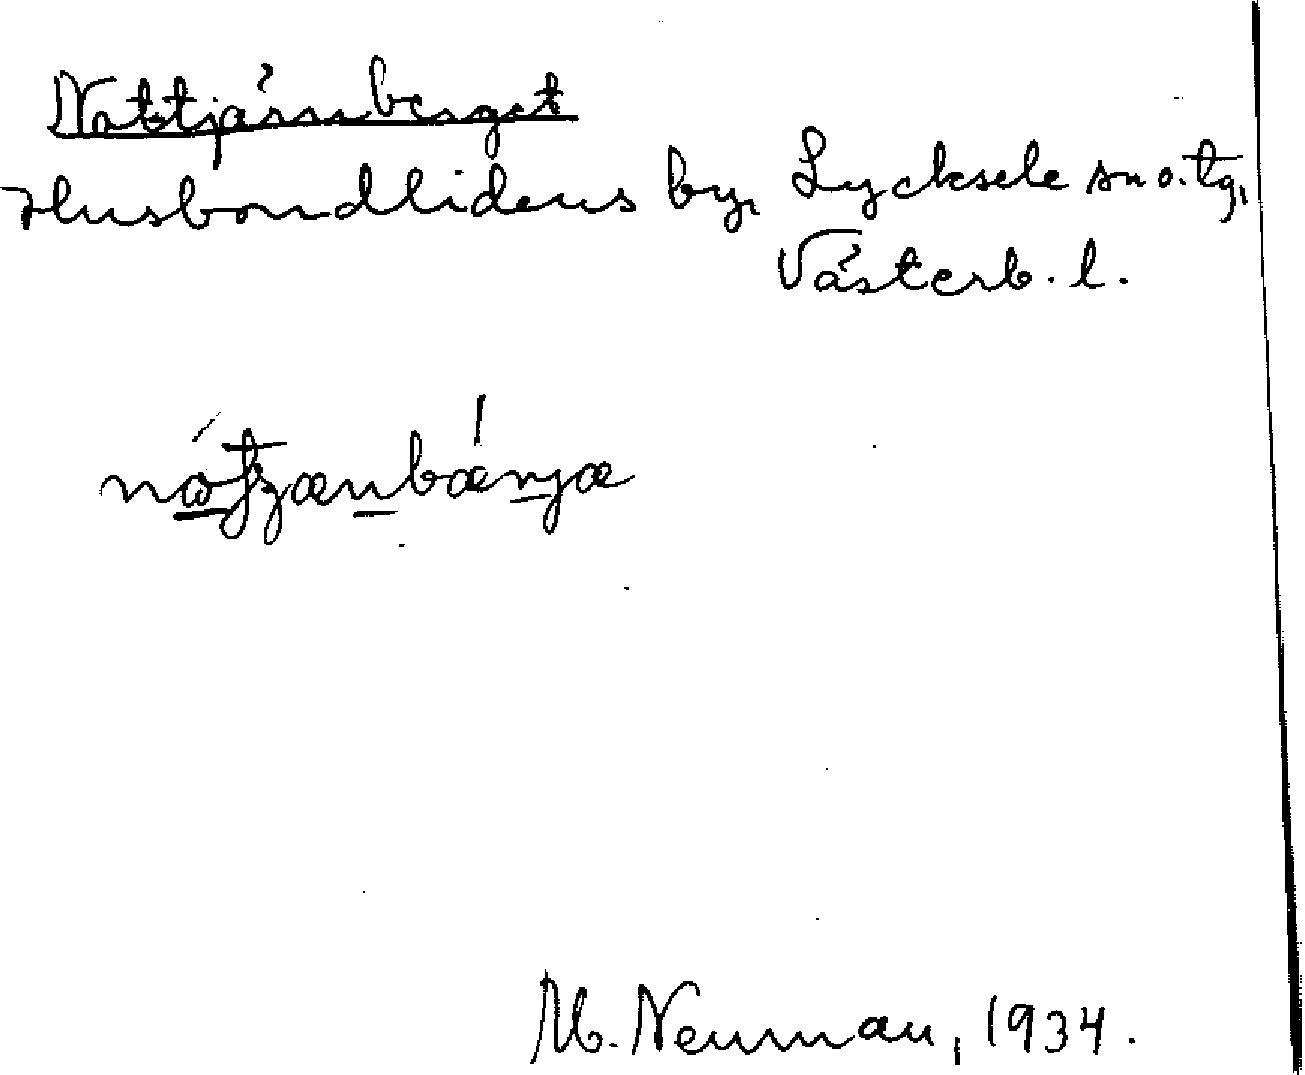 Nattjärnberget
Husbondlidens by, Lycksele sn o. tg,
Västerb. l.
M. Neuman, 1934.